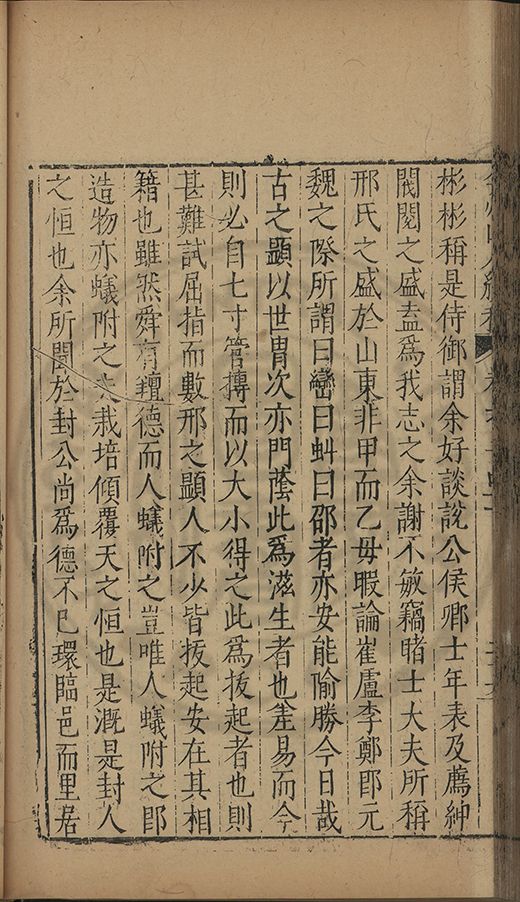 弇州四部續稿
彬彬稱是侍御謂余好談說公侯卿士年表及薦紳
閥閱之盛盍爲我志之余謝不敏竊睹士大夫所稱
邢氏之盛於山東非甲而乙毋暇論崔盧李鄭卽元
魏之際所謂曰巒曰虯曰邵者亦安能隃勝今日哉
古之顯以世胄次亦門蔭此爲滋生者也差易而今
則必自七寸管摶而以大小得之此爲拔起者也則
甚難試屈指而數邢之顯人不少皆拔起安在其相
籍也雖然舜有羶德而人蟻附之豈唯人蟻附之卽
造物亦蟻附之夫栽培傾覆天之恒也是溉是封人
之恒也余所聞於封公尚爲德不已環臨邑而里居